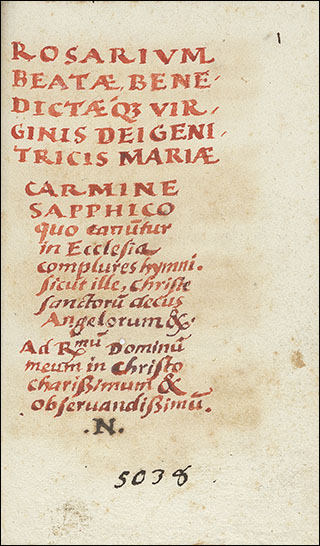 1
ROSARIVM
BEATÆ, BENE-
DICTÆQȝ VIR-
GINIS DEI GENI-
TRICIS MARIÆ
CARMINE
SAPPHICO
quo canūtur
in Ecclesia
complures hymni.
sicut ille, Christe
sanctorū decus
Angelorum &c
Ad Rmū Dominū
meum in Christo
charißimum &
obseruandißimū.
.N.
5038